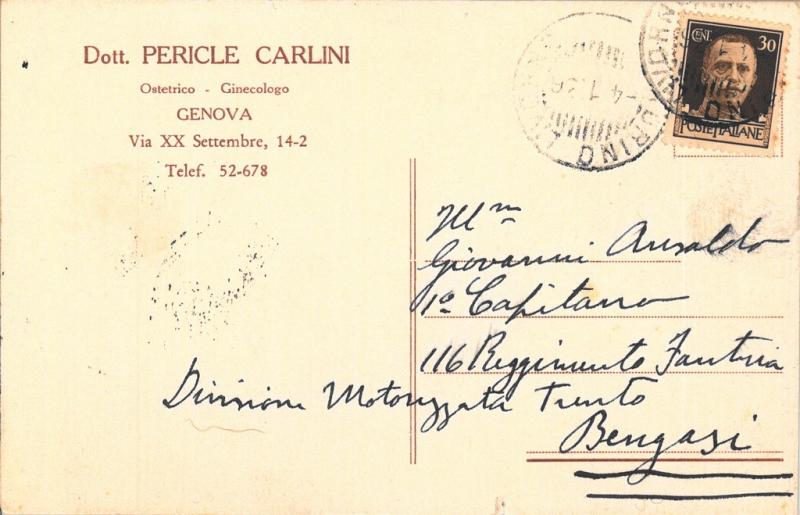 Dott. PERICLE CARLINI
Ostetrico - Ginecologo
GENOVA
Via XX Settembre, 14-2
Telef. 52-678
CENT. 30
POSTE ITALIANE
TORINO
4.1.36
Giovanni Ansaldo
1º Capitano
116 Reggimento Fantria
Divisione Motorizzata Trento
Bengasi